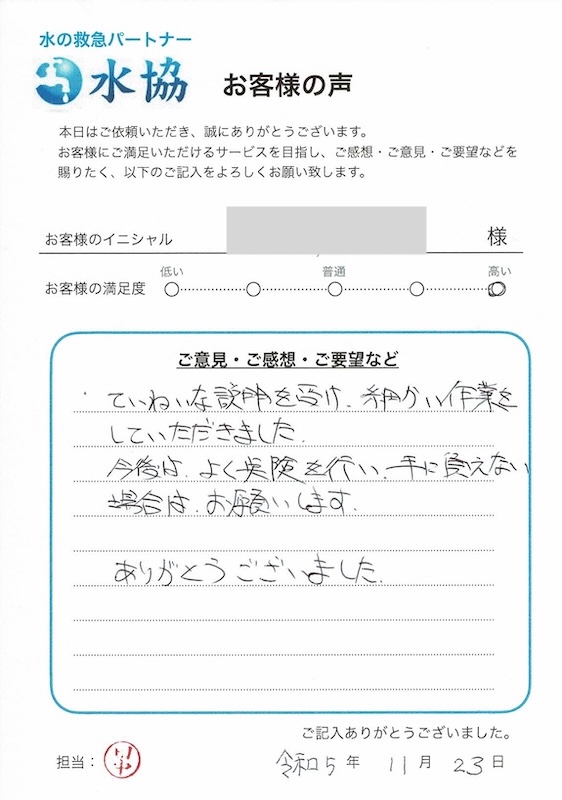 水の救急パートナー
水協
お客様の声
本日はご依頼いただき、誠にありがとうございます。
お客様にご満足いただけるサービスを目指し、ご感想・ご意見・ご要望などを
賜りたく、以下のご記入をよろしくお願い致します。
お客様のイニシャル 様
低い 普通 高い
お客様の満足度
ご意見・ご感想・ご要望など
・ていねいな説明を受け、細かい作業を
していただきました。
今後は、よく実険を行い、手に負えない
場合は、お願いします。
ありがとうございました。
ご記入ありがとうございました。
担当：
令和5年 11月 23日